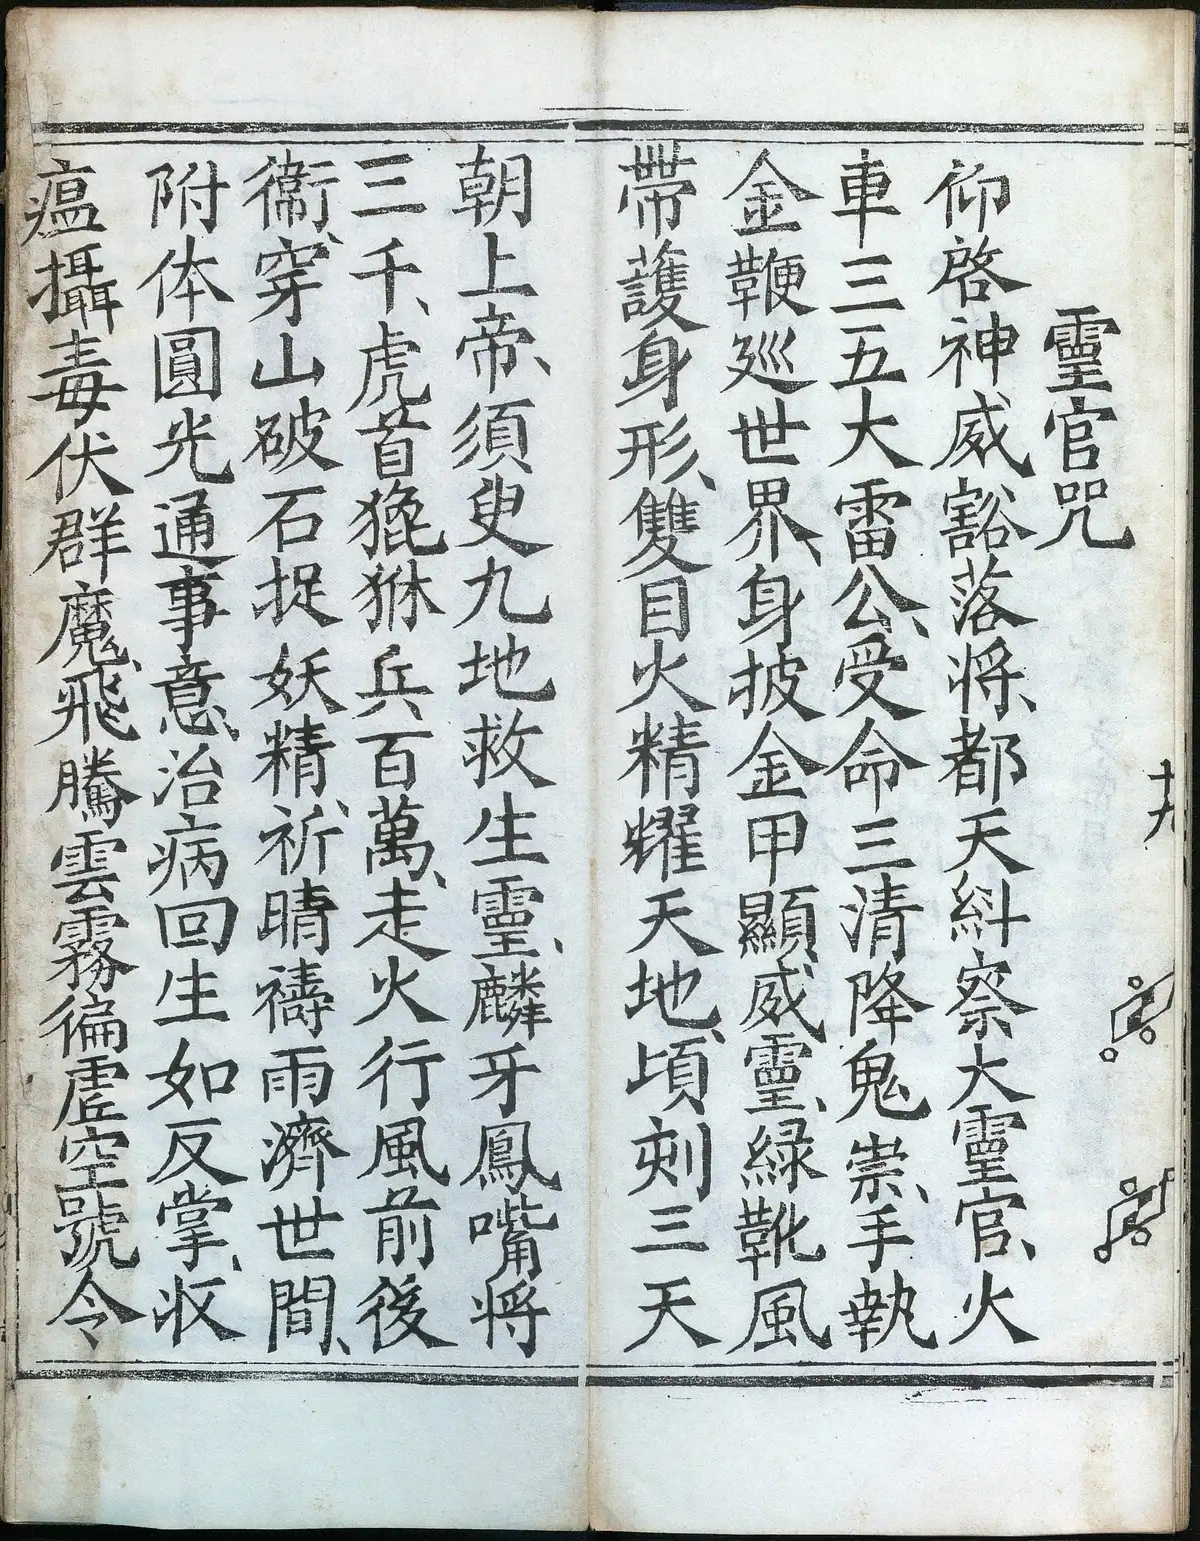 靈官咒
仰啓神威豁落将、都天糾察大靈官、火
車三五大雷公、受命三清降鬼祟、手執
金鞭廵世界、身披金甲顯威靈、緑靴風
帶護身形、雙目火精耀天地、頃刻三天
朝上帝、須臾九地救生靈、麟牙鳳嘴将
三千、虎首㹸貅兵百萬、走火行風前後
衞、穿山破石捉妖精、祈晴禱雨濟世間、
附体圓光通事意、治病回生如反掌、収
瘟攝毒伏群魔、飛騰雲霧徧虚空號令
十九